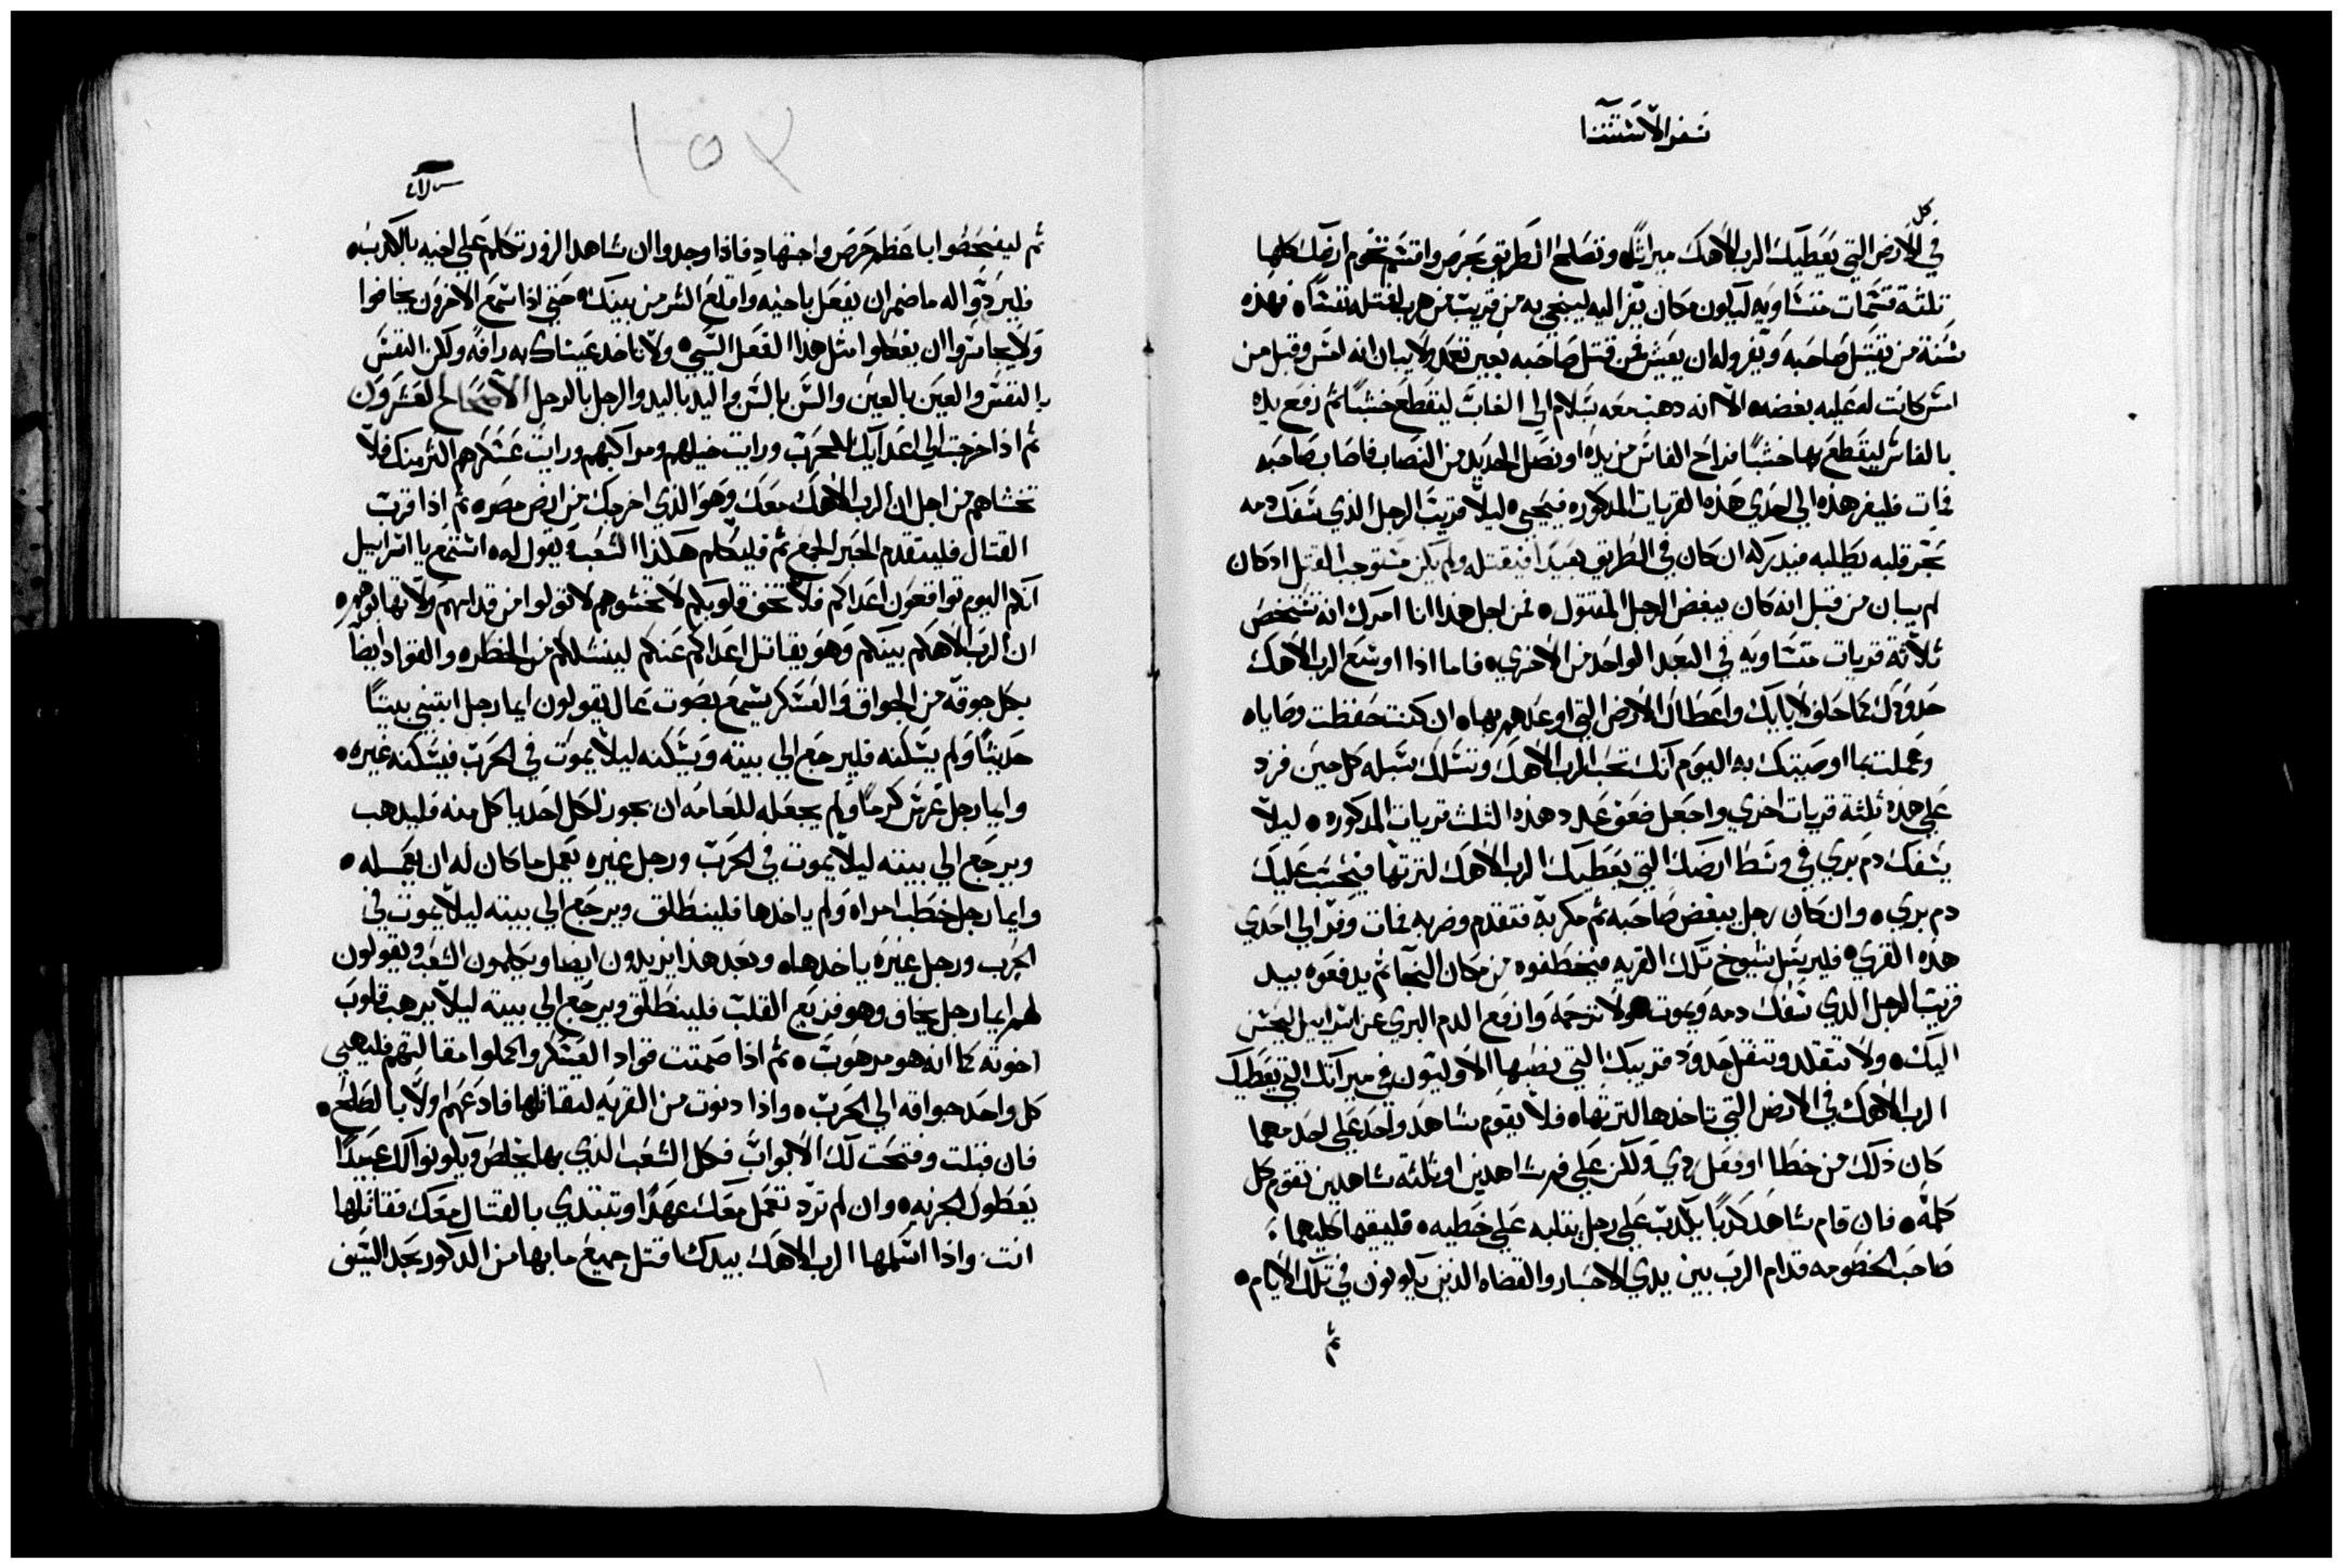 سفر الاستثنا
كل
في الارض التي يعطيك الرب الاهك ميراثًا وتصلح الطريق بحرص واقتسم تخوم ارضك كلها
ثلثة قسمات متساويه ليكون مكان يفر اليه لينجي به من قريب من هرب لقتله نفسًا ٥ فهذه
سنة من يقتل صاحبه ويفر وله ان يعيش فمن قتل صاحبه بغير تعمد ولا يبان انه امس وقبل من
امس كانت له عليه بغضه الا انه دهب معه بسلام الي الغاب ليقطع خشبًا ثم رفع يده
بالفاس ليقطع بها خشبًا فزاح الفاس من يده او نصل الحديد من النصاب فاصاب صاحبه
فمات فليفر هذه الي احدي هذه القريات المدكوره فينجي ليلا قريب الرجل الذي سفك دمه
بحر قلبه يطلبه فيدركه ان كان في الطريق بعيدا فيقتله ولم يكن مستوجب القتل اد كان
لم يبان من قبل انه كان يبغض الرجل المقتول ٥ فمن اجل هذا انا امرك انه تشخص
ثلاثة قريات متساويه في البعد الواحد من الاخري ٥ فاما اذا اوسع الرب الاهك
حدودك كما حلف لابايك واعطاك الارض التي اوعدهم بها ٥ ان كنت حفظت وصاياه
وعملت بما اوصيتك به اليوم انك تحب الرب الاهك وتسلك سبله كل حين فزد
علي هذه ثلثة قريات اخري واجعل ضعف عدد هذه الثلث قريات المدكوره ٥ ليلا
يسفك دم بري في وسط ارضك التي يعطيك الرب الاهك لترتها فيحسب عليك
دم بري ٥ وان كان رجل يبغض صاحبه ثم مكر به فتقدم وضربه فمات وفر الي احدي
هذه القري ٥ فليرسل شيوخ تلك القريه فيخطفوه من مكان النجا ثم يدفعوه بيد
قريب الرجل الدي سفك دمه ويموت ولا ترحمه وارفع الدم البري عن اسراييل ليحسن
اليك ٥ ولا تتقلد وتنقل حدود قريبك التي نصبها الاوليون في ميراتك التي يعطيك
الرب الاهك في الارض التي تاخدها لترتها ٥ فلا يقوم شاهد واحد علي احد مهما
كان ذلك من خطا او فعل ردي ولكن علي فم شاهدين او ثلثة شاهدين تقوم كل
كلمة ٥ فان قام شاهد كدبًا يكدب علي رجل يتلبه علي خطيه ٥ فليقيما كليهما
صاحب الخصومه قدام الرب بين يدي الاحبار والقضاه الذين يكونون في تلك الايام ٥
ثم
١٥٢
ثم ليفحصوا باعظم حرص واجتهاد فاذا وجدوا ان شاهد الزور تكلم علي اخيه بالكدبه
فليردوا له ما ضمر ان يفعل باخيه واقلع الشر من بينك ٥ حتي اذا سمع الاخرون يخافوا
ولا يجاسروا ان يفعلوا مثل هذا الفعل السيي ٥ ولا تاخد عيناك به رافه ولكن النفس
بالنفس والعين بالعين والسن بالسن واليد باليد والرجل بالرجل الاصحاح العشرون
ثم اذا خرجت الي اعدايك للحرب ورايت خيلهم ومراكبهم ورايت عسكرهم اكثر منك فلا
تخشاهم من اجل ان الرب الاهك معك وهو الذي اخرجك من ارض مصر ٥ ثم اذا قرب
القتال فليتقدم الحبر الجمع ثم فليكلم هكذا الشعب ويقول له ٥ استمع يا اسراييل
انكم اليوم تواقعون اعداكم فلا تخف قلوبكم لا تخشوهم لا تولوا من قدامهم ولا تهابوهم ٥
ان الرب الاهكم بينكم وهو يقاتل اعداكم عنكم لينشلكم من الخطره والقواد ايضًا
بكل جوقة من الجواق والعسكر يسمع بصوت عال يقولون ايما رجل ابتني بيتًا
حديثًا ولم يسكنه فليرجع الي بيته ويسكنه ليلا يموت في الحرب فيسكنه غيره ٥
وايما رجل غرس كرمًا ولم يجعله للعامه ان يجوز لكل احد ياكل منه فليدهب
ويرجع الي بيته ليلا يموت في الحرب ورجل غيره يعمل ما كان له ان يعمله ٥
وايما رجل خطب امراه ولم ياخدها فلينطلق ويرجع الي بيته ليلا يموت في
الحرب ورجل غيره ياخدها ٥ وبعد هذا يزيدون ايضا ويكلمون الشعب ويقولون
لهم ايما رجل يخاف وهو فزيع القلب فلينطلق ويرجع الي بيته ليلا يرهب قلوب
اخوته كما انه هو مرهوب ٥ ثم اذا صمتت قواد العسكر واكملوا مقالتهم فليهيي
كل واحد جواقه الي الحرب ٥ واذا دنوت من القريه لتقاتلها فادعهم اولًا بالصلح ٥
فان قبلت وفتحت لك الابواب فكل الشعب الذي بها يخلص ويكونوا لك عبيدًا
يعطوك الجزيه ٥ وان لم ترد تعمل معك عهدًا وتبتدي بالقتال معك فقاتلها
انت ٥ واذا اسلمها الرب الاهك بيدك اقتل جميع ما بها من الدكور بحد السيف